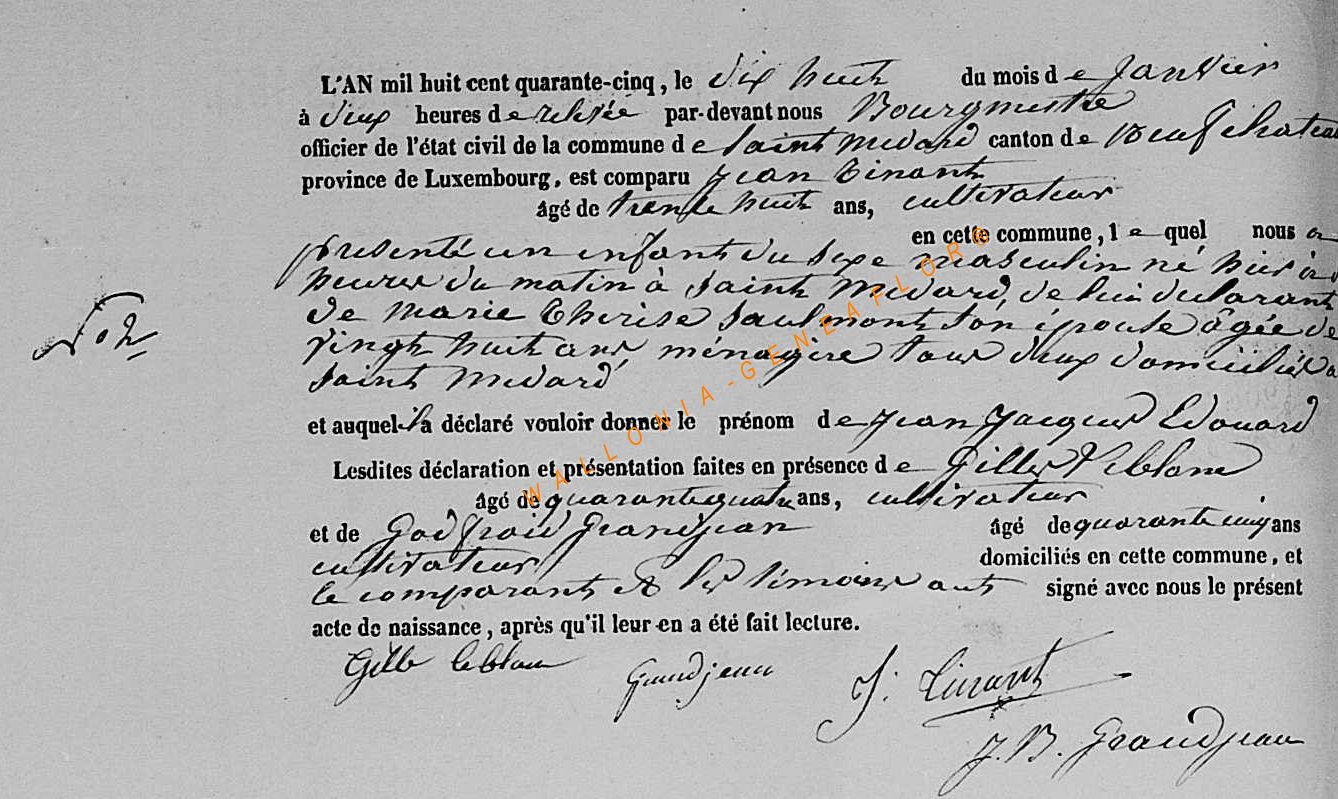 L'AN mil huit cent quarante-cinq, le dix huit du mois de Janvier
à deux heures de relevée par-devant nous Bourgmestre
officier de l'état civil de la commune de Saint Medard canton de Neufchateau
province de Luxembourg, est comparu Jean Tinant
âgé de trente huit ans, cultivateur
en cette commune, lequel nous a
presenté un enfant du sexe masculin né hier à
heures du matin à Saint Medard, de lui declarant
de Marie Therise Saulmont son épouse âgée de
vingt huit ans, ménagère tous deux domiciliés a
Saint Medard
et auquel il a déclaré vouloir donner le prénom de Jean Jacques Edouard
Lesdites déclaration et présentation faites en présence de Gilles Leblanc
âgé de quarante quatre ans, cultivateur
et de Godfroid Grandjean âgé de quarante cinq ans
cultivateur domiciliés en cette commune, et
le comparant et les témoins ont signé avec nous le présent
acte de naissance, après qu'il leur en a été fait lecture.
Gille leblanc Grandjean J: Tinant
J. B. Grandjean
WALLONIA-GENEAFLORE